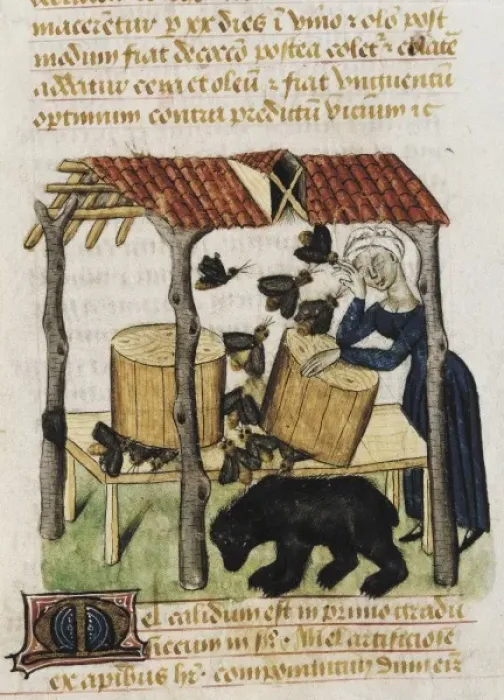 macerētur p xx dies ī vino et oleo post
modum fiat decoctō postea coletʳ et colatē
addatur cera et oleū et fiat vnguentū
optimum contra predictū vicium ⁊c
Mel calidum est in primo gradu
siccum in s̄. Mel artificiose
ex apibus hr̄. componitur dum eīz